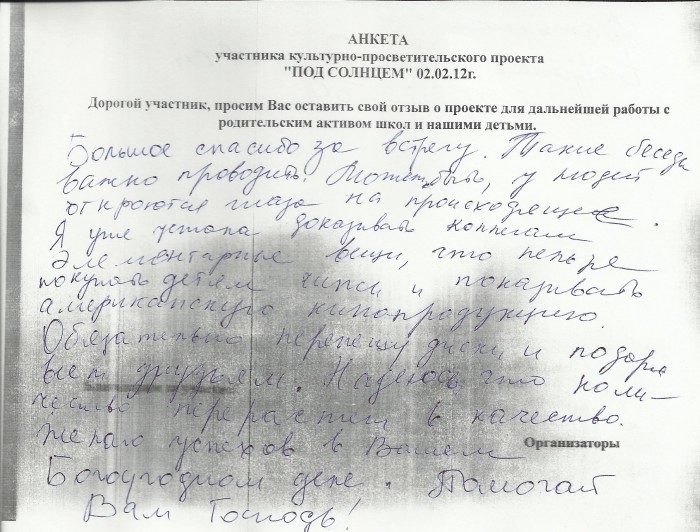 АНКЕТА
участника культурно-просветительского проекта
"ПОД СОЛНЦЕМ" 02.02.12г.
Дорогой участник, просим Вас оставить свой отзыв о проекте для дальнейшей работы с
родительским активом школ и нашими детьми.
Большое спасибо за встречу. Такие беседы
важно проводить. Может быть, у людей
откроются глаза на происходящее.
Я уже устала доказывать коллегам
элементарные вещи, что нельзя
покупать детям чипсы и показывать
американскую кинопродукцию.
Обязательно перепишу диски и подарю
всем друзьям. Надеюсь, что коли-
чество перерастет в качество.
Желаю успехов в Вашем
Организаторы
Богоугодном деле. Помогай
Вам Господь!